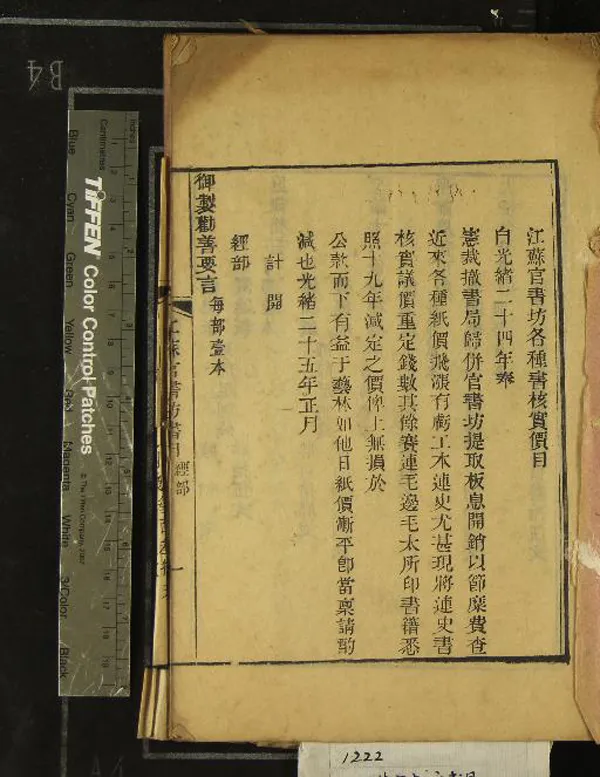 江蘇官書坊各種書核實價目
自光緒二十四年奉
憲裁撤書局歸併官書坊提取板息開銷以節糜費查
近來各種紙價飛漲有虧工本連史尤甚現將連史書
核實議價重定錢數其餘賽連毛邊毛太所印書籍悉
照十九年減定之價俾上無損於
公款而下有益于藝林如他日紙價漸平卽當稟請酌
減也光緒二十五年正月
計開
經部
御製勸善要言 每部壹本
蘇官書坊書目 經部
B4
TIFFEN Color Control Patches
© The Tiffen Company, 2007
Centimetres
Inches
Blue
Cyan
Green
Yellow
Red
Magenta
White
3/Color
Black
1222